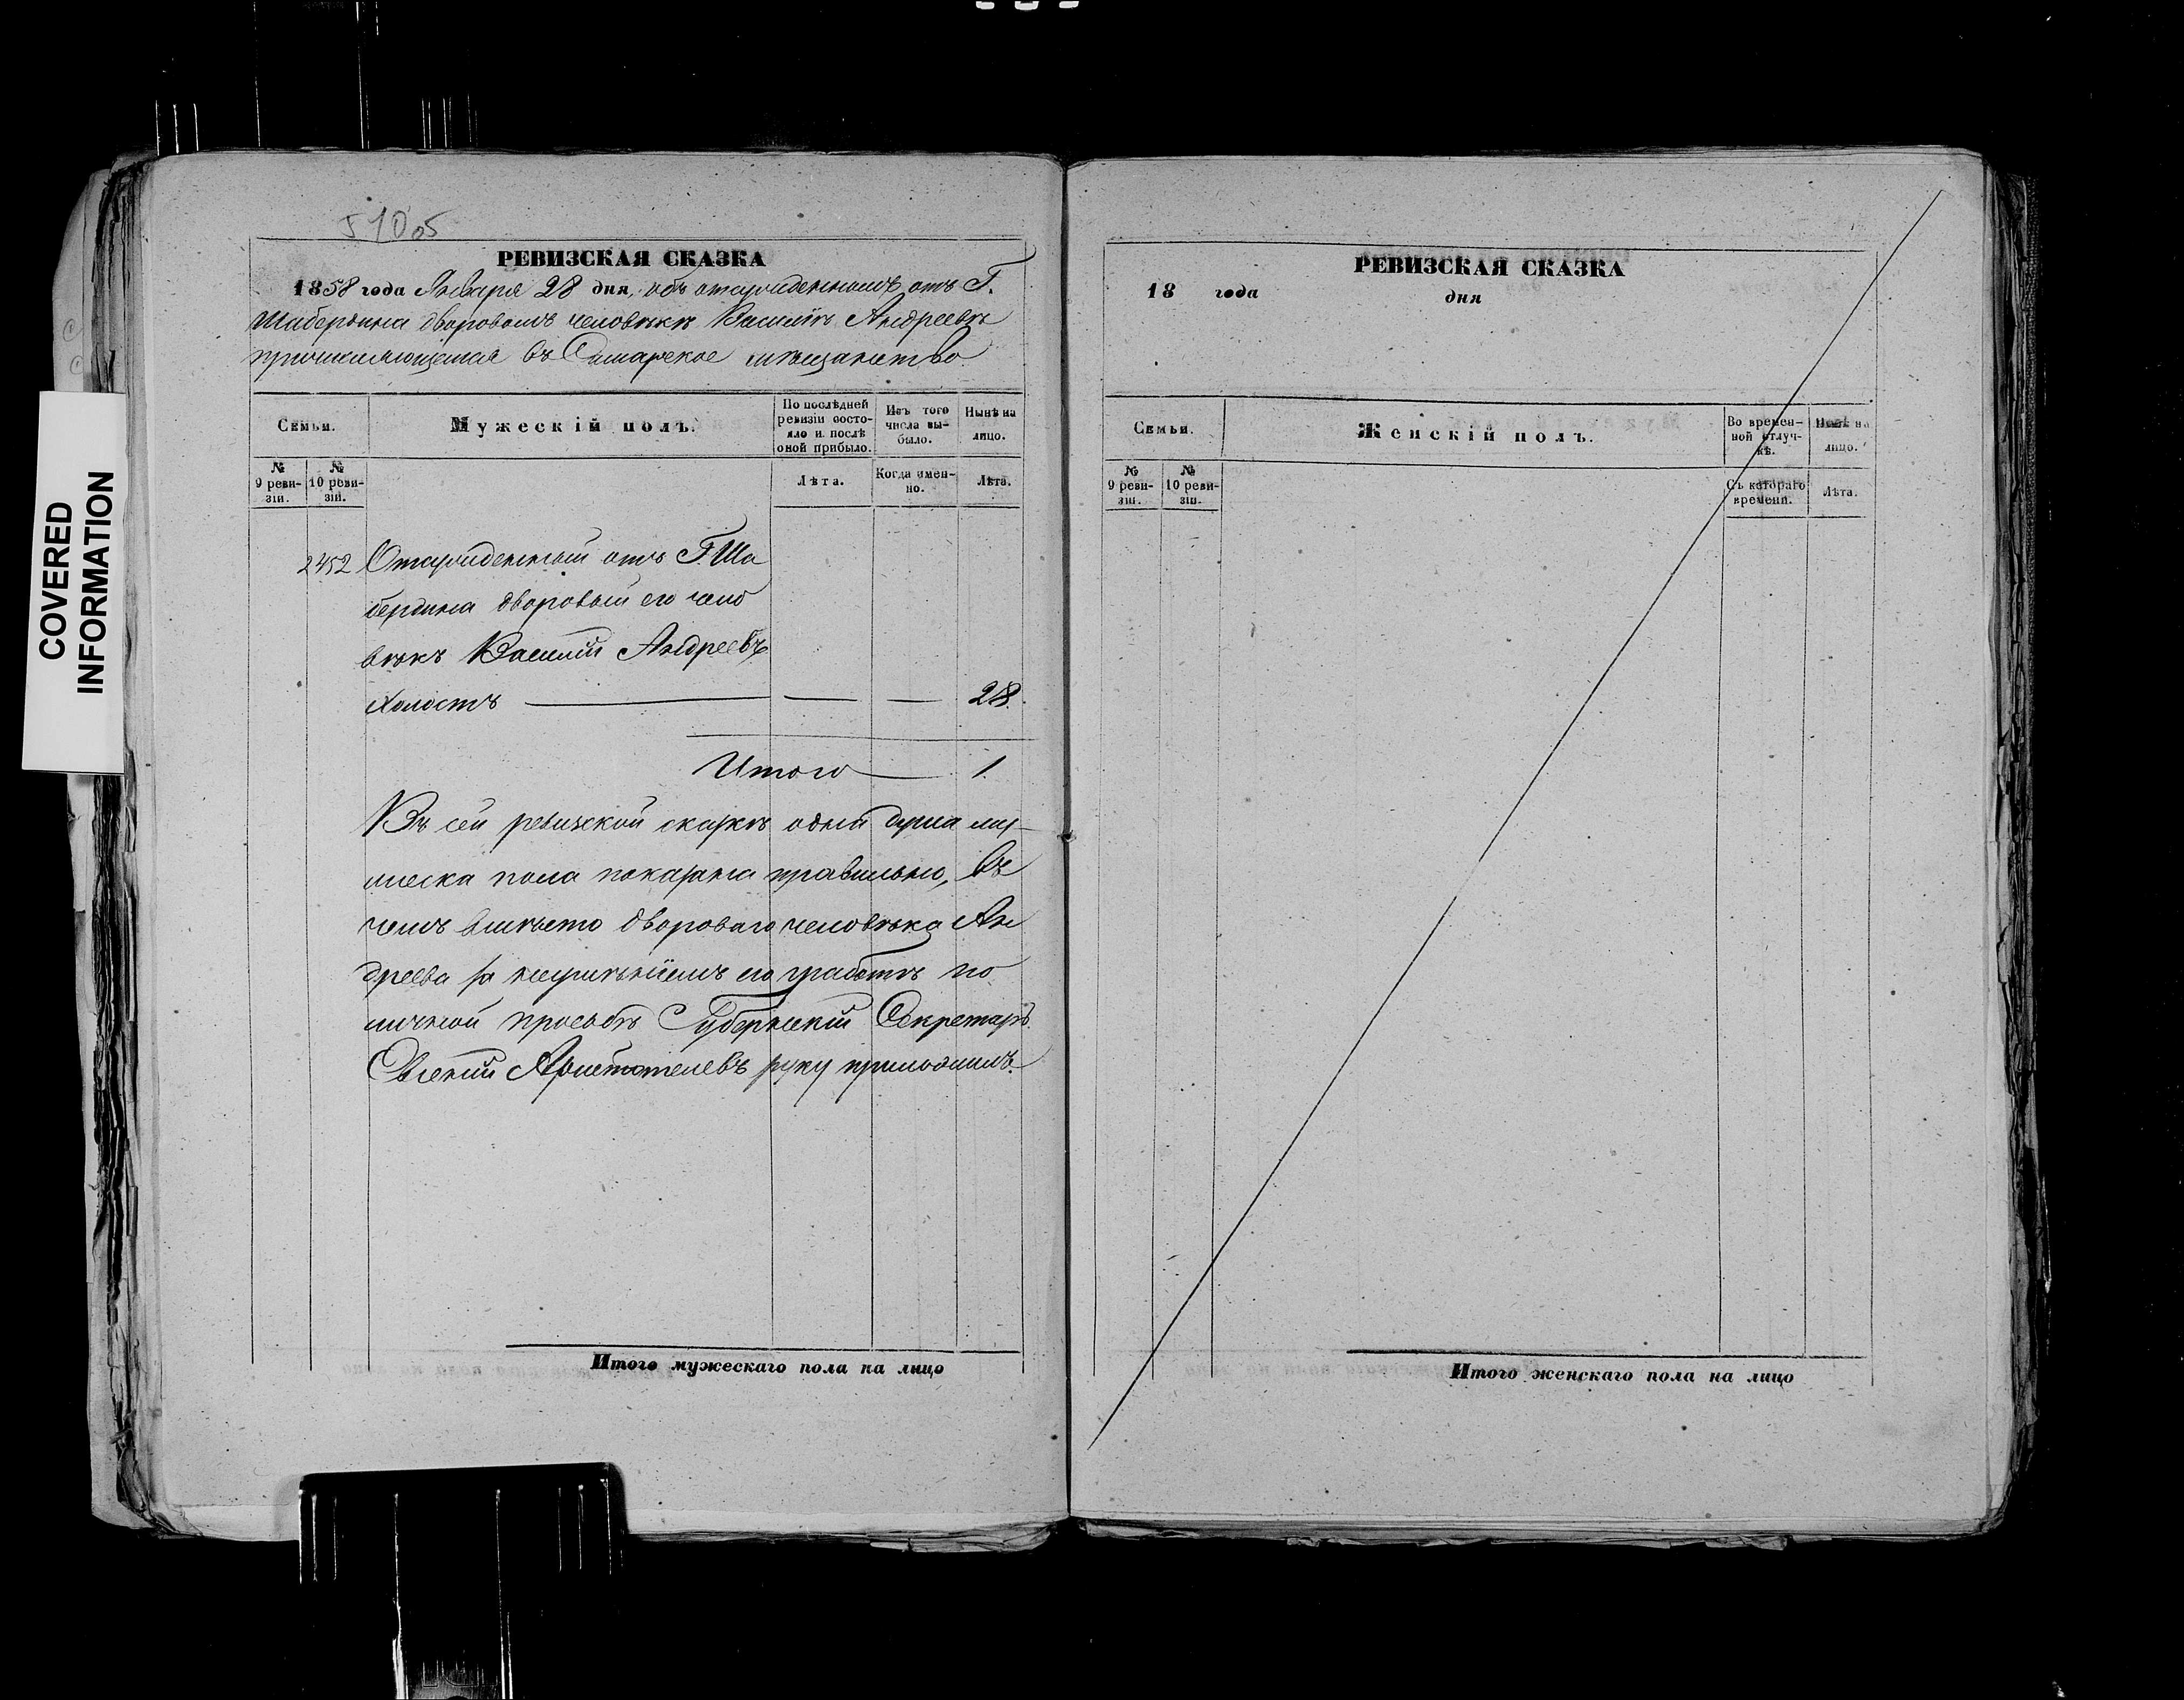 COVERED
INFORMATION
РЕВИЗСКАЯ СКАЗКА
1858 года Января 28 дня, объ отпущенномъ отъ Г.
Шабердина дворовомъ человѣкѣ Василіѣ Андреевѣ
причисляющемся въ Самарское мѣщанство
Семьи.
Мужескій полъ.
По послѣдней
ревизіи состо-
яло и послѣ
оной прибыло.
Изъ того
числа вы-
было.
Нынѣ на
лицо.
№
9 реви-
зіи.
№
10 реви-
зіи.
Лѣта.
Когда имен-
но.
Лѣта.
2452 Отпущенный отъ Г. Ша
бердина дворовый его чело
вѣкъ Василій Андреевъ
холостъ 28.
Итого 1
Въ сей ревизской сказкѣ одна душа муж
жеска пола показана правильно, въ
чемъ вмѣсто двороваго человѣка Ан
дреева за неумѣніемъ его грамотѣ по
личной просьбѣ Губернскій Секретарь
Аристотелевъ руку приложилъ.
Итого мужескаго пола на лицо
РЕВИЗСКАЯ СКАЗКА
18 года дня
Семьи.
Женскій полъ.
Во времен-
ной отлуч-
кѣ.
Нынѣ на
лицо.
№
9 реви-
зіи.
№
10 реви-
зіи.
Съ котораго
времени.
Лѣта.
Итого женскаго пола на лицо